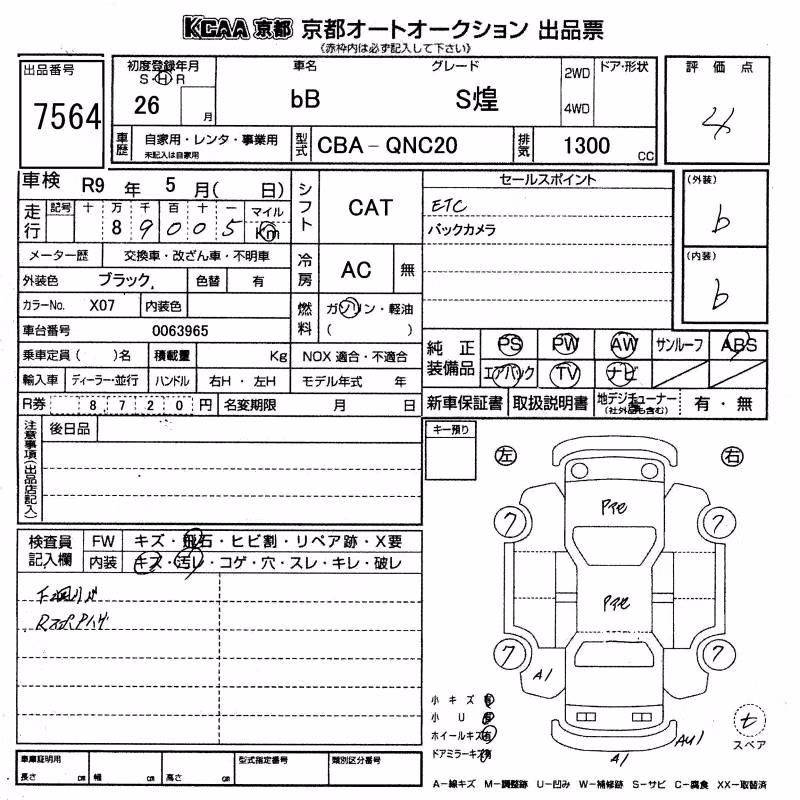 KCAA 京都 京都オートオークション 出品票
(赤枠内は必ず記入して下さい)
出品番号
7564
初度登録年月
S・H・R
26
月
車名
bB
グレード
S煌
2WD
4WD
ドア・形状
評価点
4
車歴
自家用・レンタ・事業用
未記入は自家用
型式
CBA－QNC20
排気
1300
cc
車検 R9 年 5 月( 日)
走行
記号 十 万 千 百 十 一
8 9 0 0 5
マイル
Km
シフト
CAT
セールスポイント
ETC
バックカメラ
(外装)
b
(内装)
b
メーター歴
交換車・改ざん車・不明車
冷房
AC
無
外装色
ブラック
色替
有
カラーNo.
X07
内装色
燃料
ガソリン・軽油
( )
車台番号
0063965
乗車定員( )名
積載量
Kg
NOX 適合・不適合
輸入車
ディーラー・並行
ハンドル
右H・左H
モデル年式 年
R券
8,720円
名変期限
月 日
純正装備品
PS
PW
AW
サンルーフ
ABS
エアバック
TV
ナビ
新車保証書
取扱説明書
地デジチューナー
(社外品も含む)
有・無
注意事項(出品店記入)
後日品
キー預り
左
右
検査員記入欄
FW
キズ・飛石・ヒビ割・リペア跡・X要
内装
キズ・汚レ・コゲ・穴・スレ・キレ・破レ
7
7
7
7
A1
A1
AU1
小キズ有
小U有
ホイールキズ有
ドアミラーキズ有
スペア
車庫証明用
長さ cm
幅 cm
高さ cm
型式指定番号
類別区分番号
A－線キズ M－調整跡 U－凹み W－補修跡 S－サビ C－腐食 XX－取替済